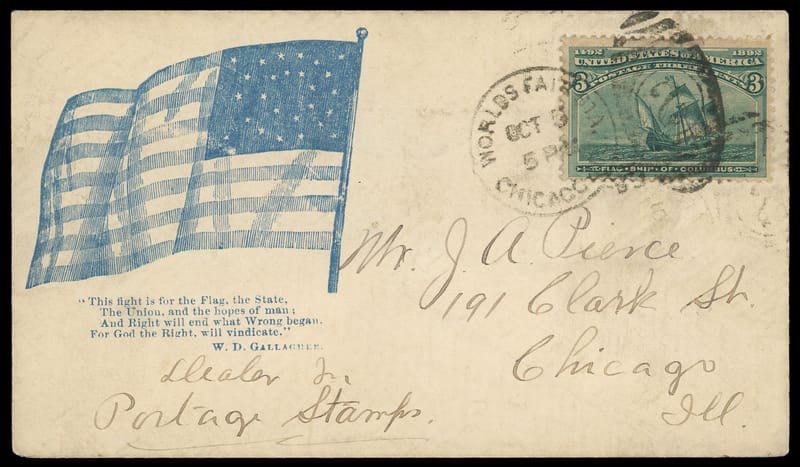 1492 1892
UNITED STATES OF AMERICA
POSTAGE THREE CENTS
3 3
FLAG-SHIP OF COLUMBUS
WORLDS FAIR
OCT
5 PM
CHICAGO
93
"This fight is for the Flag, the State,
The Union, and the hopes of man;
And Right will end what Wrong began,
For God the Right, will vindicate."
W. D. GALLAGHER.
Mr. J. A. Pierce
191 Clark St.
Chicago
Ill.
Dealer In
Postage Stamps.